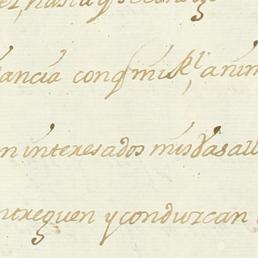 hasta q
ancia con q mi Rl anim
n interesados mis Vasall
ntreguen y conduzcan